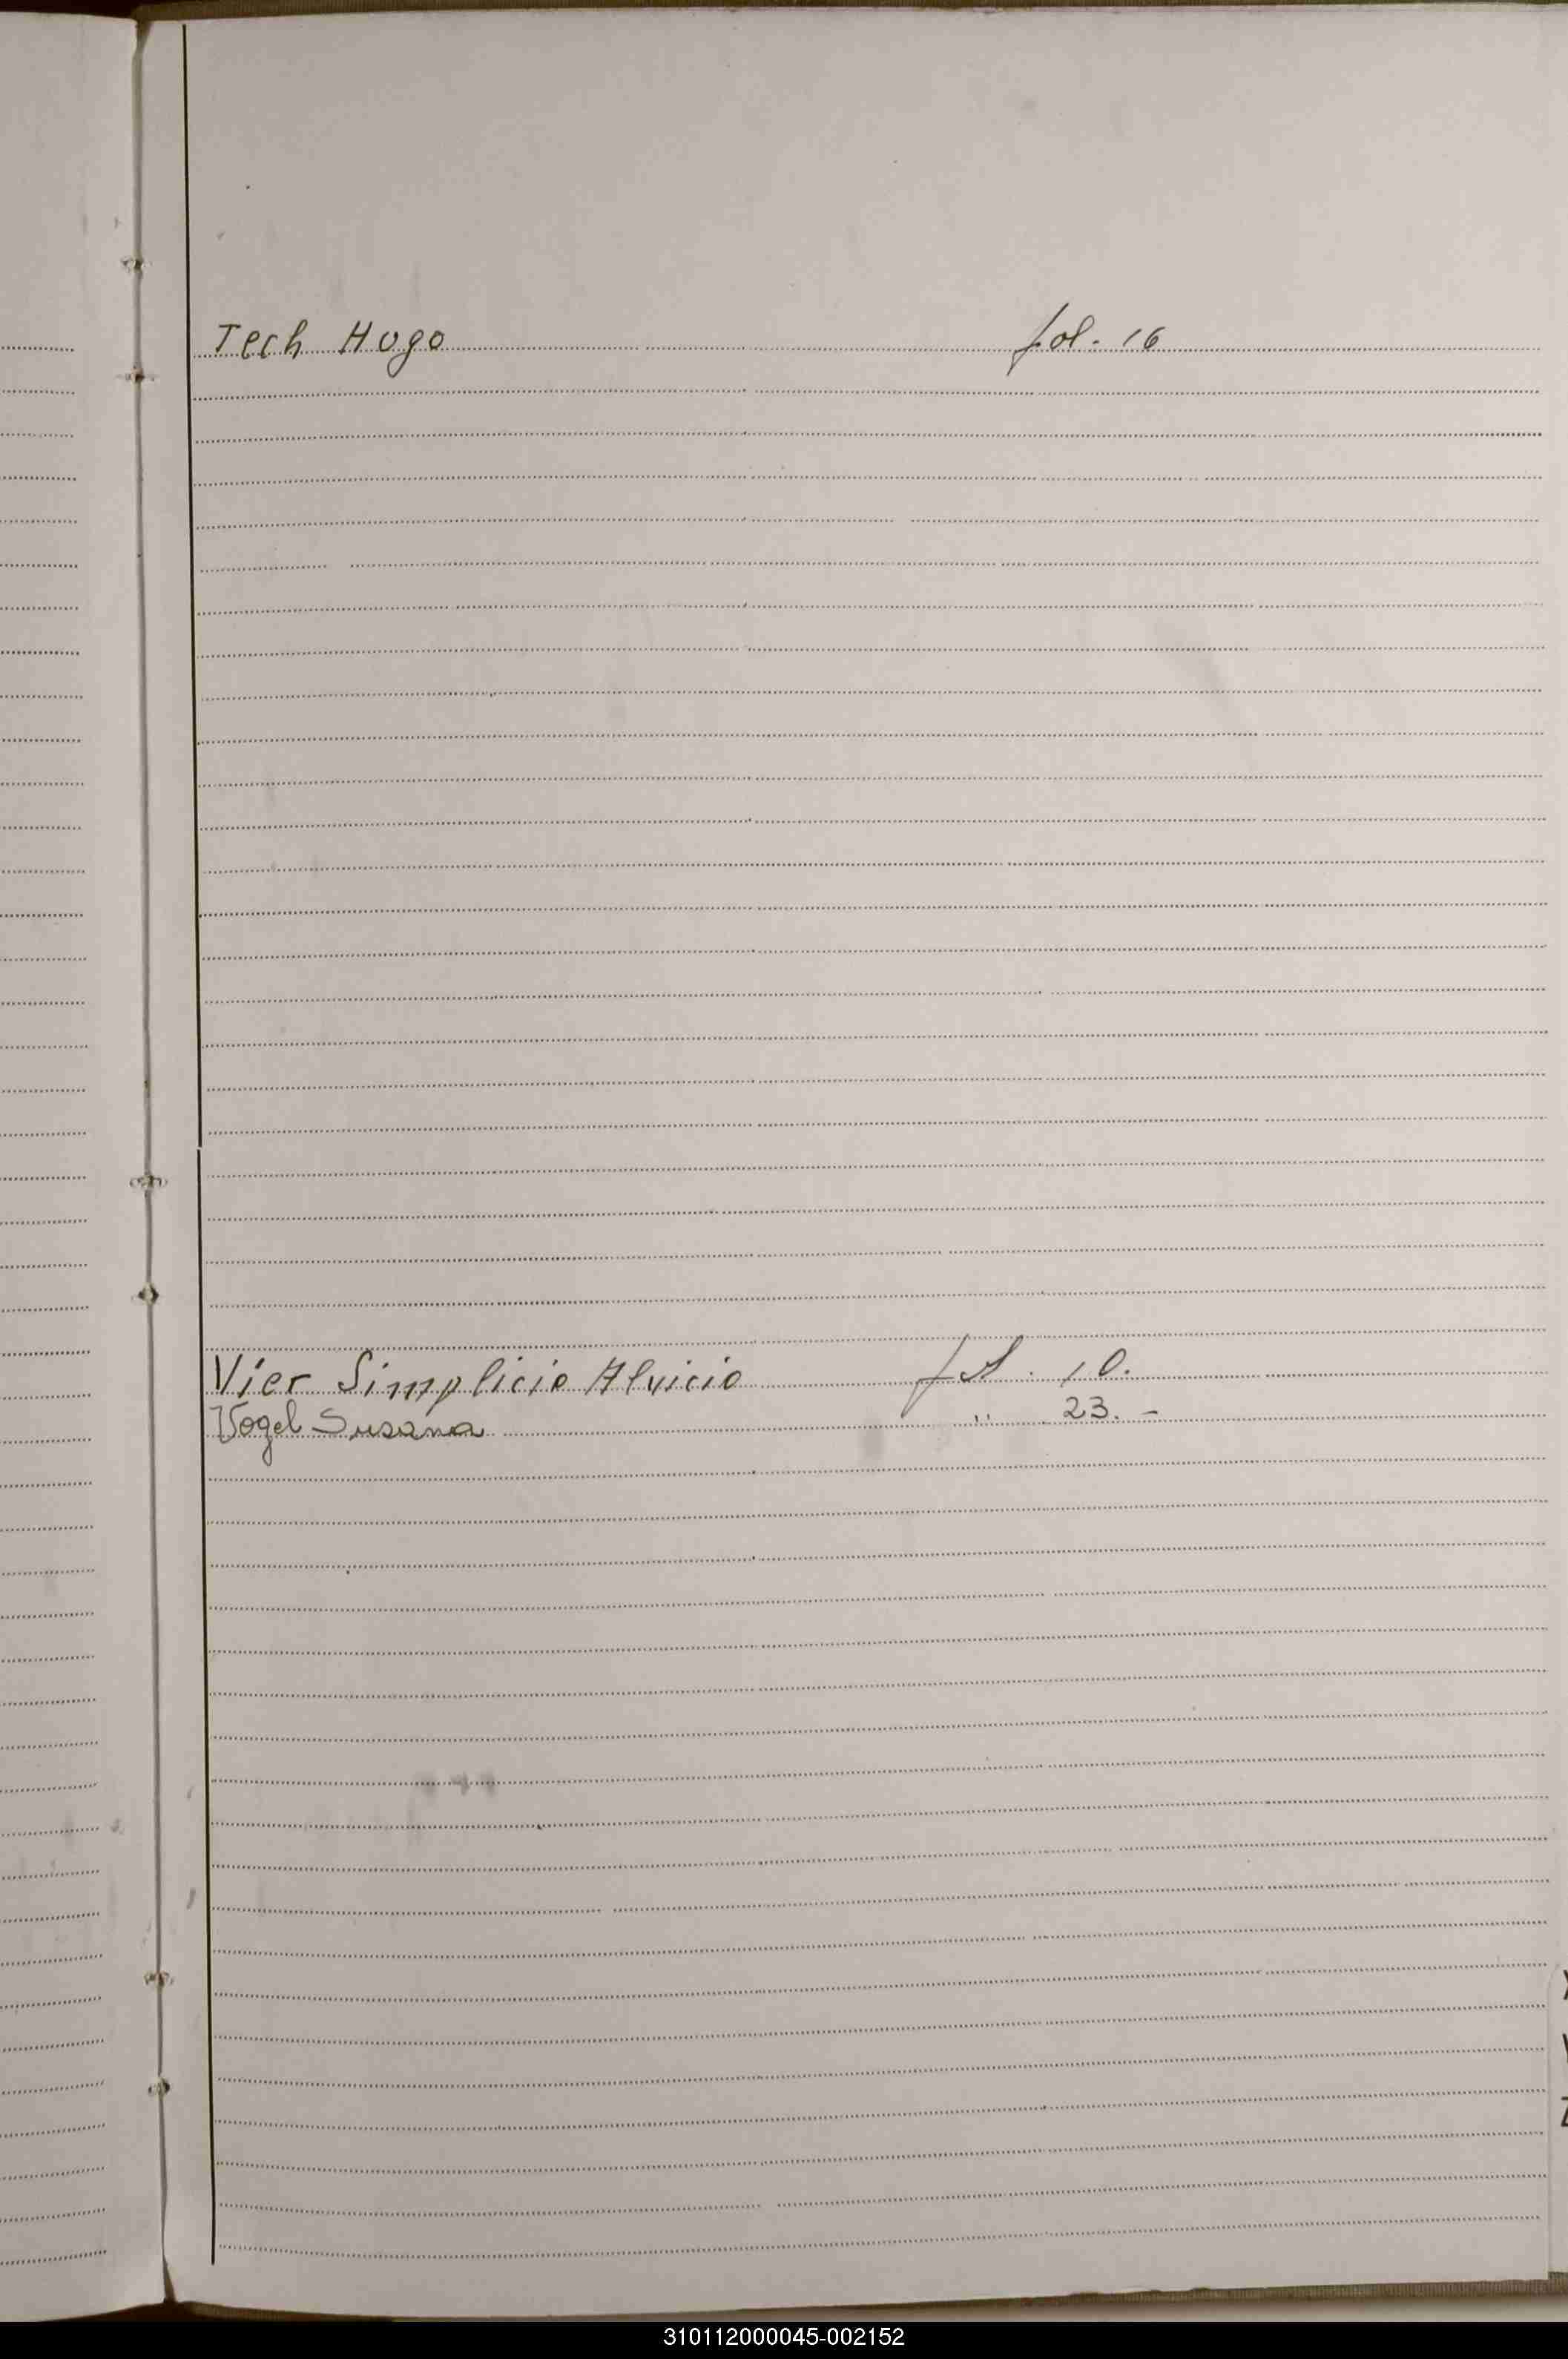 Tech Hugo fol. 16
Vier Simplicio Alvicio fol. 10.
Vogel Susana " 23. -
310112000045-002152